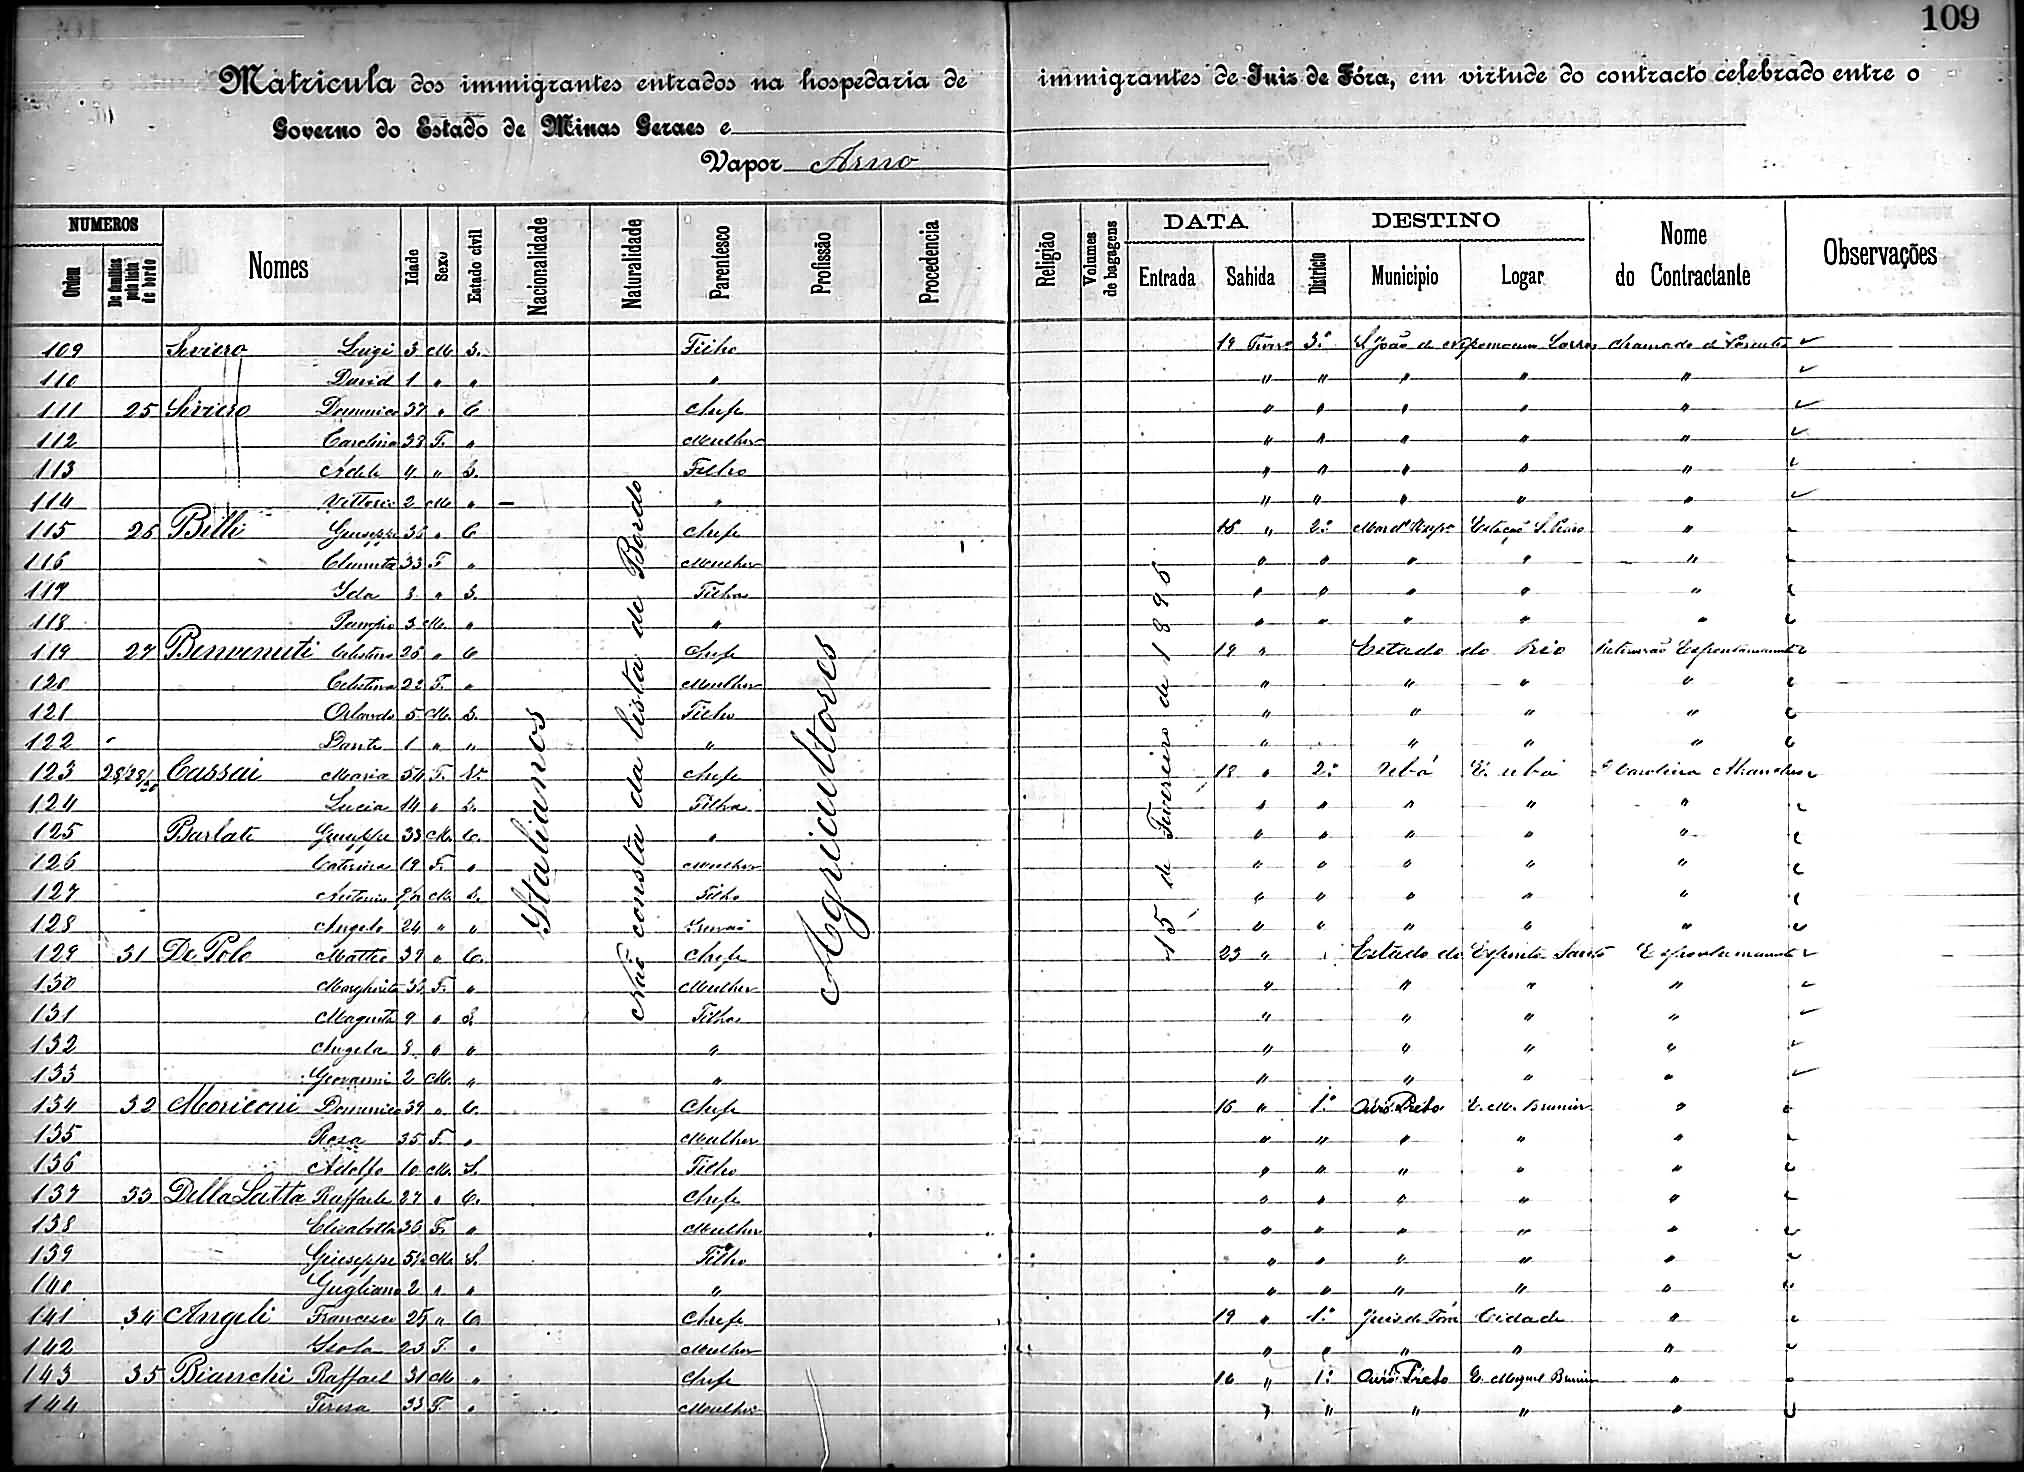 109
Matricula dos immigrantes entrados na hospedaria de immigrantes de Juiz de Fóra, em virtude do contracto celebrado entre o
Governo do Estado de Minas Geraes e
Vapor Arno
NUMEROS DATA DESTINO
Ordem De familias pela lista de bordo Nomes Idade Sexo Estado civil Nacionalidade Naturalidade Parentesco Profissão Procedencia Religião Volumes de bagagens Entrada Sahida Districto Municipio Logar Nome do Contractante Observações
Italianos
Não consta da lista de Bordo
Agricultores
15 de Fevereiro de 1896
109 Siviero Luigi 3 M S. Filho 19 3.º S. João de
110 David 1 " " " " " " " "
111 25 Siviero Domenico 37 " C Chefe " " " " "
112 Carolina 38 F. " Mulher " " " " "
113 Adele 4 " S. Filho " " " " "
114 Vittorio 2 M " " " " " " "
115 26 Billi Giuseppe 36 " C Chefe 18 " 2.º Estação "
116 33 F " Mulher " " " " "
117 Ida 3 " S. Filha " " " " "
118 3 M. " " " " " " "
119 27 Benvenuti 26 " C Chefe 19 " Estado do Rio Espontaneamente
120 Celestina 22 F. " Mulher " " " "
121 Orlando 5 M. S. Filho " " " "
122 Dante 1 " " " " " " "
123 Cassai Maria 54 F. V. Chefe 18 " 2.º Ubá E. Ubá Carolina
124 Lucia 14 " S. Filha " " " " "
125 Burlati Giuseppe 33 M. C. " " " " " "
126 Caterina 19 F. " Mulher " " " " "
127 Antonio M. S. Filho " " " " "
128 Angelo 24 " " Irmão " " " " "
129 31 De Polo Matteo 39 " C. Chefe 23 " Estado do Espirito Santo Espontaneamente
130 Margherita 33 F. " Mulher " " " "
131 9 " S. Filha " " " "
132 Angela 3 " " " " " " "
133 Giovanni 2 M. " " " " " "
134 32 Moriconi Domenico 39 " C. Chefe 16 " 1.º Ouro Preto E. M. Burnier "
135 Rosa 35 F. " Mulher " " " " "
136 Adolfo 10 M. S. Filho " " " " "
137 33 Della Latta Raffaele 27 " C. Chefe " " " " "
138 Elisabetta 36 F. " Mulher " " " " "
139 Giuseppe M. S. Filho " " " "
140 Gugliano 2 " " " " " " " "
141 34 Angeli Francesco 25 " C. Chefe 19 " 1.º Juiz de Fóra Cidade "
142 23 F. " Mulher " " " " "
143 35 Bianchi Raffael 31 M " Chefe 16 " 1.º Ouro Preto E. Miguel Burnier "
144 Teresa 33 F. " Mulher " " " " "